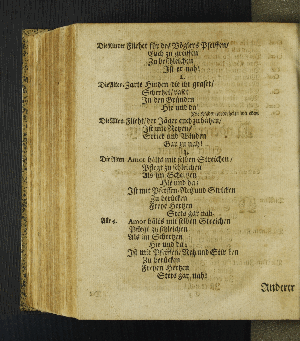 Die Alten. Fliehet für des Voglers Pfeiffen/
Euch zu greiffen
Zu beschleichen
Ist er nah!
2.
Die Alten. Zarte Hinden die ihr graset/
Scherzet/ raset
In den Gründen
Hie und da!
Die Alten. Flieht/ der Jäger euch zu haben/
Ist mit
Strick und Winden
Gar zu nah!
3.
Die Alten Amor hälts mit selben Streichen/
Pflegt zu schleichen
Als im Schertzen
Hie und da;
Ist mit Pfeiffen/ Netz und Stricken
Zu berücken
Freye Hertzen
Stets gar nah.
Alle 4. Amor hälts mit selben Streichen
Pflegt zu schleichen
Als im Schertzen
Hie und da;
Ist mit Pfeiffen/ Netz und Stricken
Zu berücken
Freyen Hertzen
Stets gar nah!
Anderer